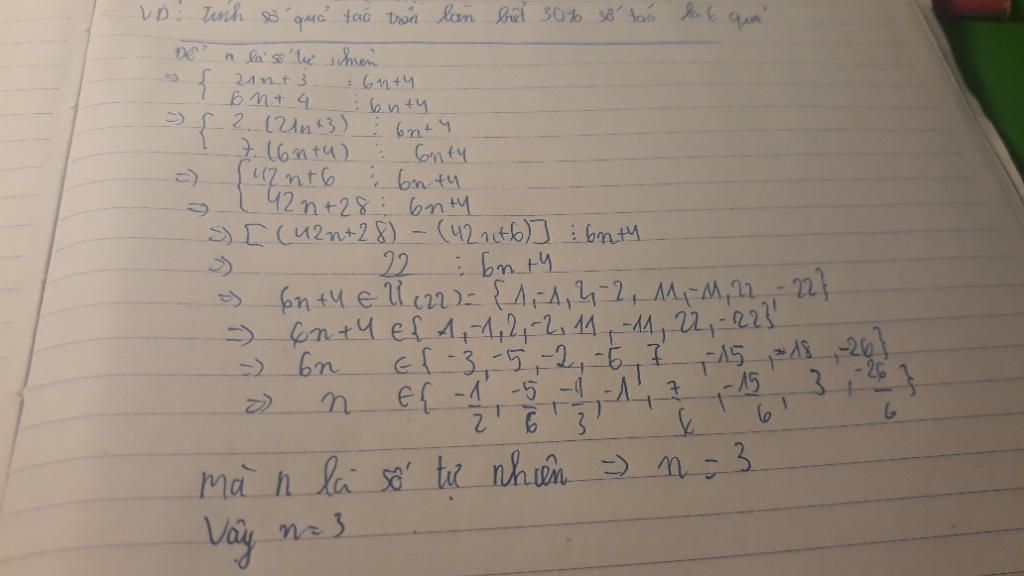 VD: Tính số quả táo trên bàn biết 30% số táo là 6 quả
Để n là số tự nhiên
=> { 21n+3 ⋮ 6n+4
6n+4 ⋮ 6n+4
=> { 2.(21n+3) ⋮ 6n+4
7.(6n+4) ⋮ 6n+4
=> { 42n+6 ⋮ 6n+4
=> 42n+28 ⋮ 6n+4
=> [(42n+28) - (42n+6)] ⋮ 6n+4
=> 22 ⋮ 6n+4
=> 6n+4 ∈ Ư(22) = {1,-1,2,-2,11,-11,22,-22}
=> 6n+4 ∈ {1,-1,2,-2,11,-11,22,-22}
=> 6n ∈ {-3,-5,-2,-6,7,-15,18,-26}
=> n ∈ {-1/2, -5/6, -1/3, -1, 7/6, -15/6, 3, -26/6}
mà n là số tự nhiên => n = 3
Vậy n=3